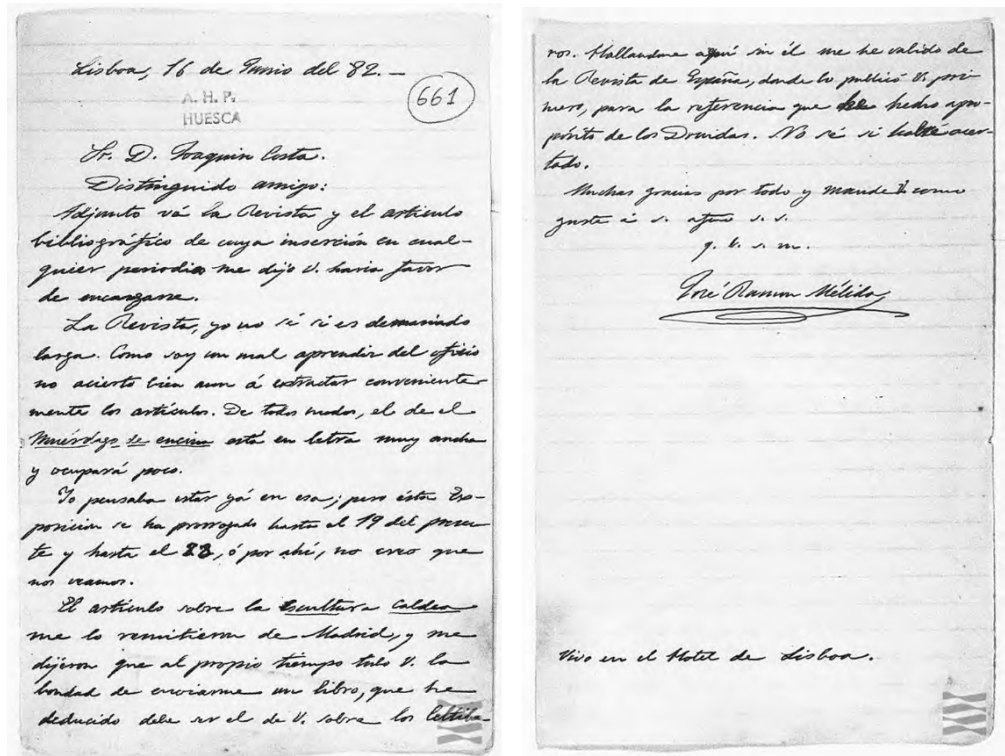 Lisboa, 16 de Junio del 82. —
A. H. P.
HUESCA
661
Sr. D. Joaquin Costa.
Distinguido amigo:
Adjunto vá la Revista y el artículo
bibliográfico de cuya inserción en cual-
quier periodico me dijo V. haria favor
de encargarse.
La Revista, yo no sé si es demasiado
larga. Como soy un mal aprendiz del oficio
no acierto bien aun á extractar conveniente-
mente los artículos. De todos modos, el de el
Muérdago de encina está en letra muy ancha
y ocupará poco.
Yo pensaba estar yá en esa; pero ésta Ex-
posicion se ha prorrogado hasta el 19 del presen-
te y hasta el 23, ó por ahí, no creo que
nos veamos.
El artículo sobre la Escultura Caldea
me lo remitieron de Madrid, y me
dijeron que al propio tiempo tubo V. la
bondad de enviarme un libro, que he
deducido debe ser el de V. sobre los Celtibe-
ros. Hallandome aquí sin él me he valido de
la Revista de España, donde lo publicó V. pri-
mero, para la referencia que hecho apro-
pósito de los Druidas. No sé si habré acer-
tado.
Muchas gracias por todo y mande V. como
guste á s. afmo s. s.
q. b. s. m.
José Ramon Mélida
Vivo en el Hotel de Lisboa.
XIX
XIX